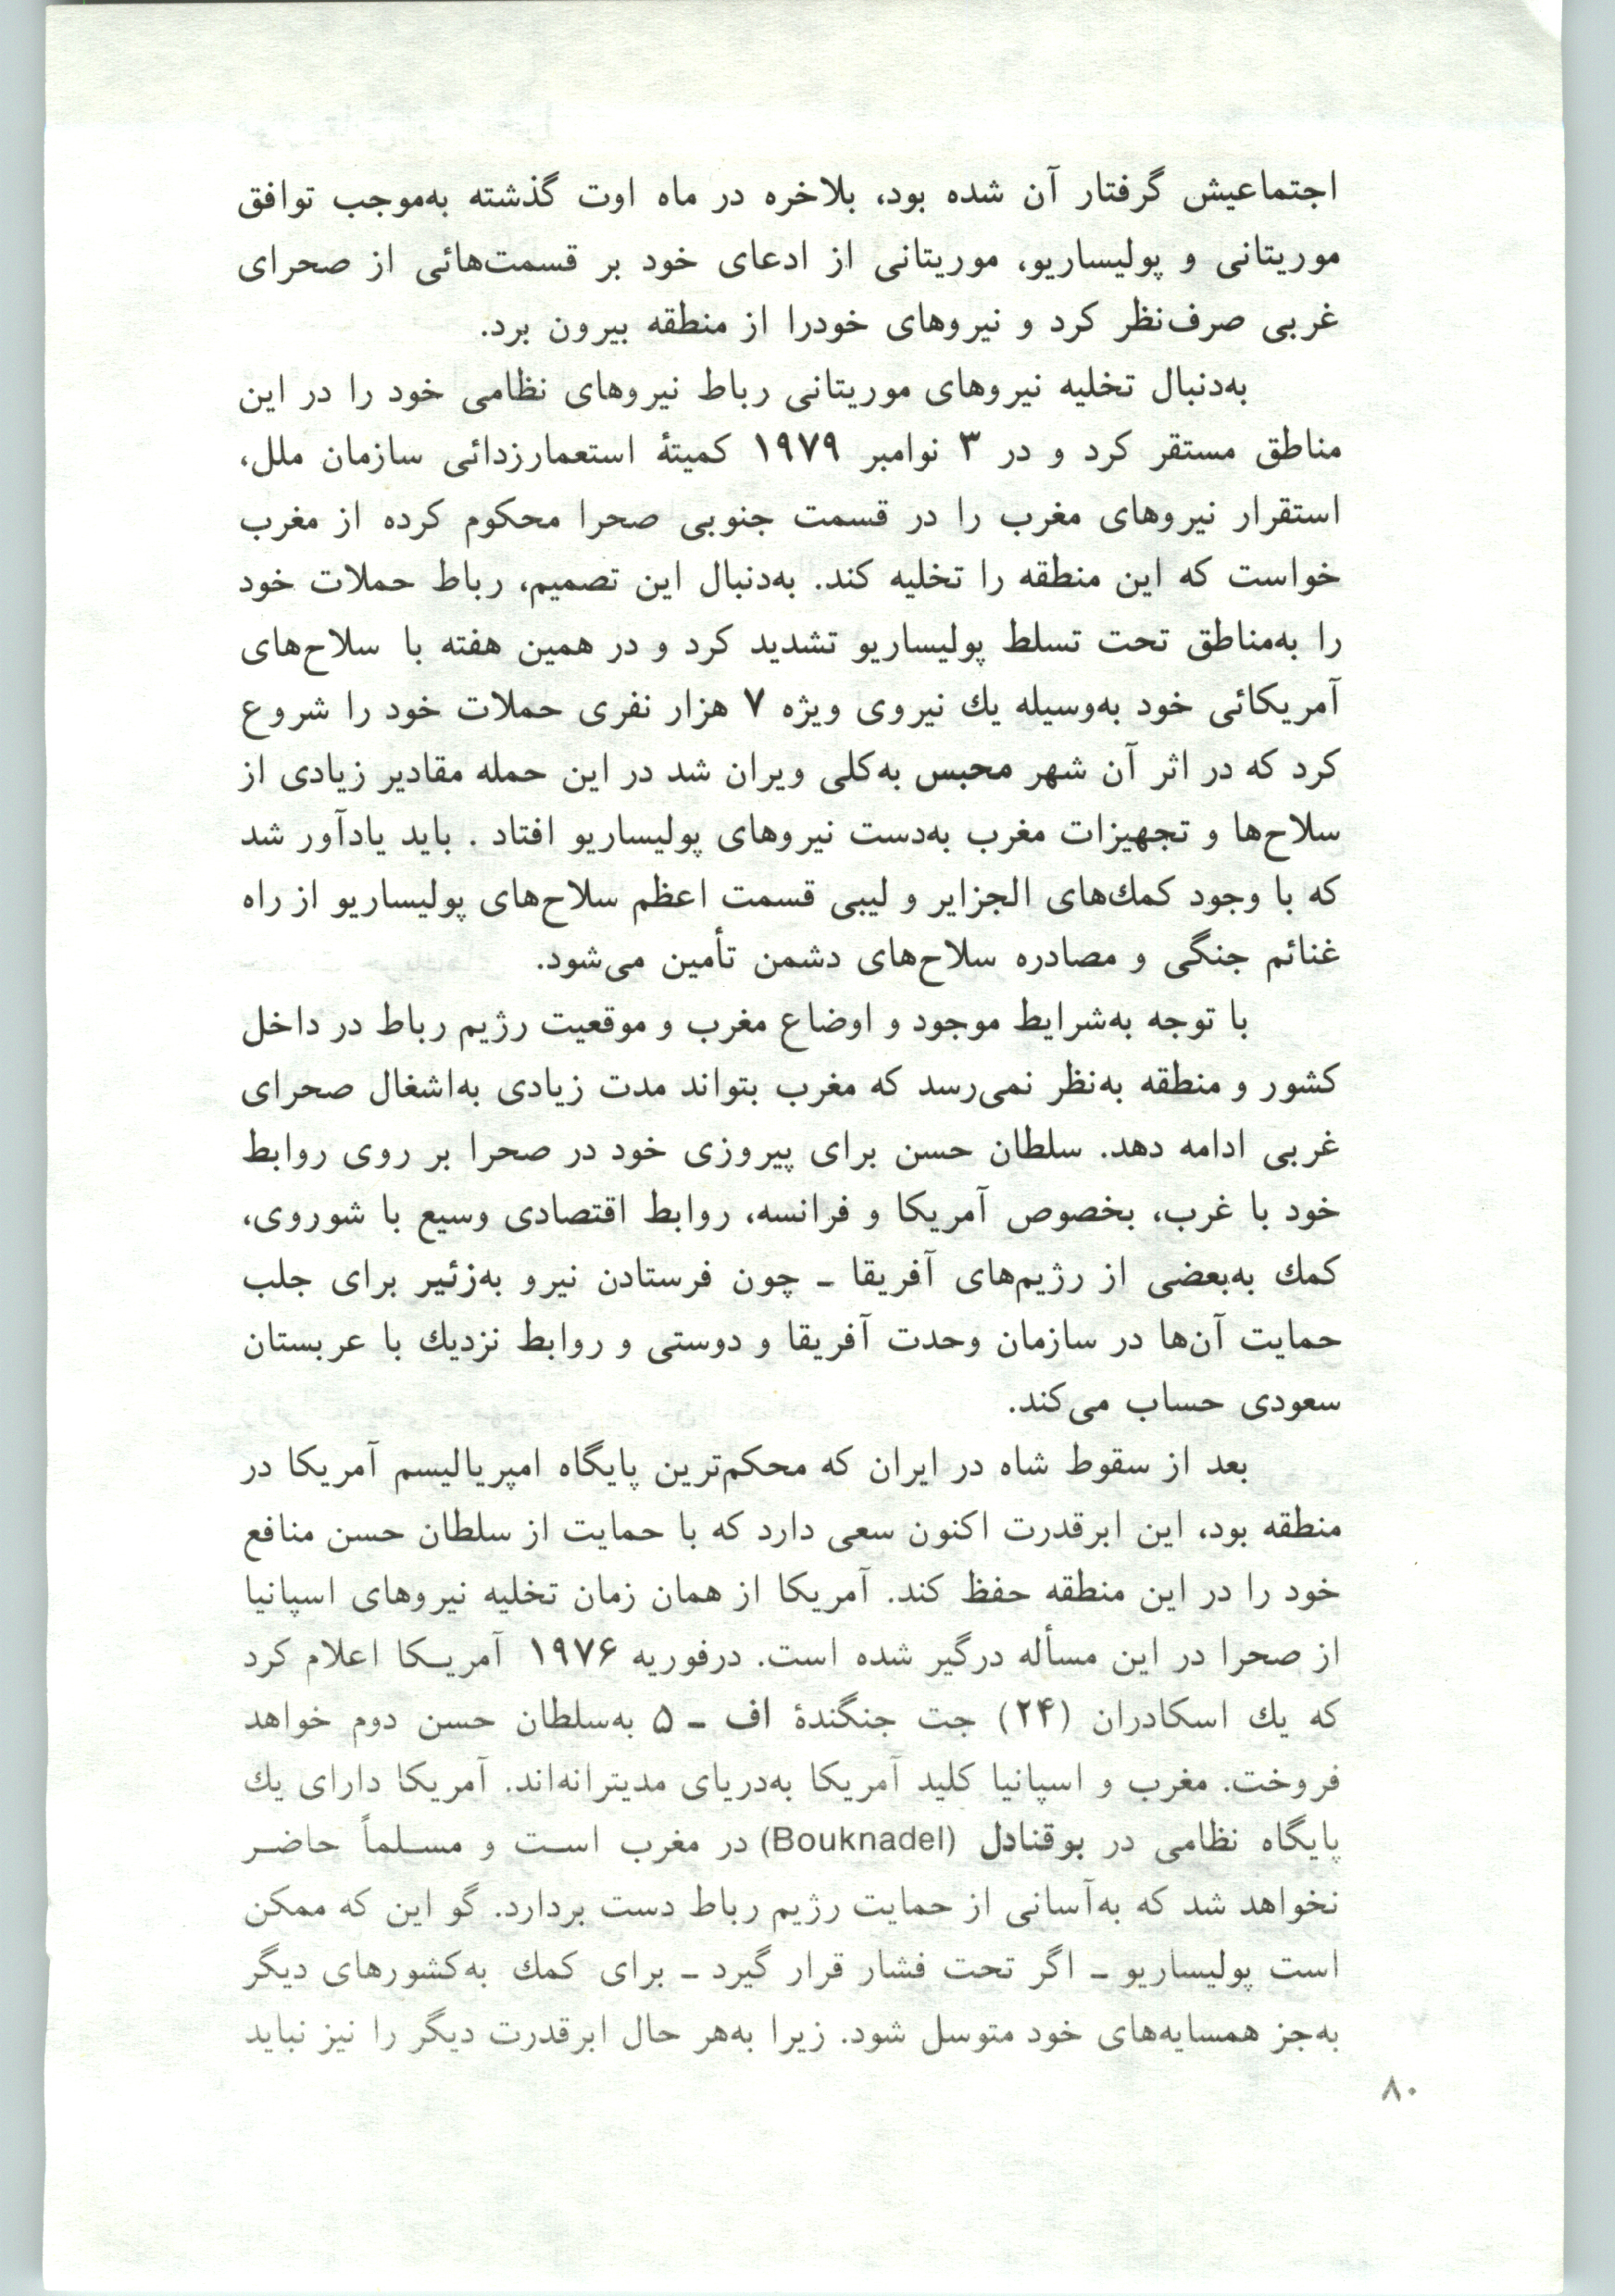 اجتماعیش گرفتار آن شده بود، بلاخره در ماه اوت گذشته به‌موجب توافق
موریتانی و پولیساریو، موریتانی از ادعای خود بر قسمت‌هائی از صحرای
غربی صرف‌نظر کرد و نیروهای خودرا از منطقه بیرون برد.
به‌دنبال تخلیه نیروهای موریتانی رباط نیروهای نظامی خود را در این
مناطق مستقر کرد و در ۳ نوامبر ۱۹۷۹ کمیتهٔ استعمارزدائی سازمان ملل،
استقرار نیروهای مغرب را در قسمت جنوبی صحرا محکوم کرده از مغرب
خواست که این منطقه را تخلیه کند. به‌دنبال این تصمیم، رباط حملات خود
را به‌مناطق تحت تسلط پولیساریو تشدید کرد و در همین هفته با سلاح‌های
آمریکائی خود به‌وسیله یك نیروی ویژه ۷ هزار نفری حملات خود را شروع
کرد که در اثر آن شهر محبس به‌کلی ویران شد در این حمله مقادیر زیادی از
سلاح‌ها و تجهیزات مغرب به‌دست نیروهای پولیساریو افتاد . باید یادآور شد
که با وجود کمك‌های الجزایر و لیبی قسمت اعظم سلاح‌های پولیساریو از راه
غنائم جنگی و مصادره سلاح‌های دشمن تأمین می‌شود.
با توجه به‌شرایط موجود و اوضاع مغرب و موقعیت رژیم رباط در داخل
کشور و منطقه به‌نظر نمی‌رسد که مغرب بتواند مدت زیادی به‌اشغال صحرای
غربی ادامه دهد. سلطان حسن برای پیروزی خود در صحرا بر روی روابط
خود با غرب، بخصوص آمریکا و فرانسه، روابط اقتصادی وسیع با شوروی،
کمك به‌بعضی از رژیم‌های آفریقا ـ چون فرستادن نیرو به‌زئیر برای جلب
حمایت آن‌ها در سازمان وحدت آفریقا و دوستی و روابط نزدیك با عربستان
سعودی حساب می‌کند.
بعد از سقوط شاه در ایران که محکم‌ترین پایگاه امپریالیسم آمریکا در
منطقه بود، این ابرقدرت اکنون سعی دارد که با حمایت از سلطان حسن منافع
خود را در این منطقه حفظ کند. آمریکا از همان زمان تخلیه نیروهای اسپانیا
از صحرا در این مسأله درگیر شده است. درفوریه ۱۹۷۶ آمریـکا اعلام کرد
که یك اسکادران (۲۴) جت جنگندهٔ اف ـ ۵ به‌سلطان حسن دوم خواهد
فروخت. مغرب و اسپانیا کلید آمریکا به‌دریای مدیترانه‌اند. آمریکا دارای یك
پایگاه نظامی در بوقنادل (Bouknadel) در مغرب اسـت و مسـلماً حاضـر
نخواهد شد که به‌آسانی از حمایت رژیم رباط دست بردارد. گو این که ممکن
است پولیساریو ـ اگر تحت فشار قرار گیرد ـ برای کمك به‌کشورهای دیگر
به‌جز همسایه‌های خود متوسل شود. زیرا به‌هر حال ابرقدرت دیگر را نیز نباید
۸۰